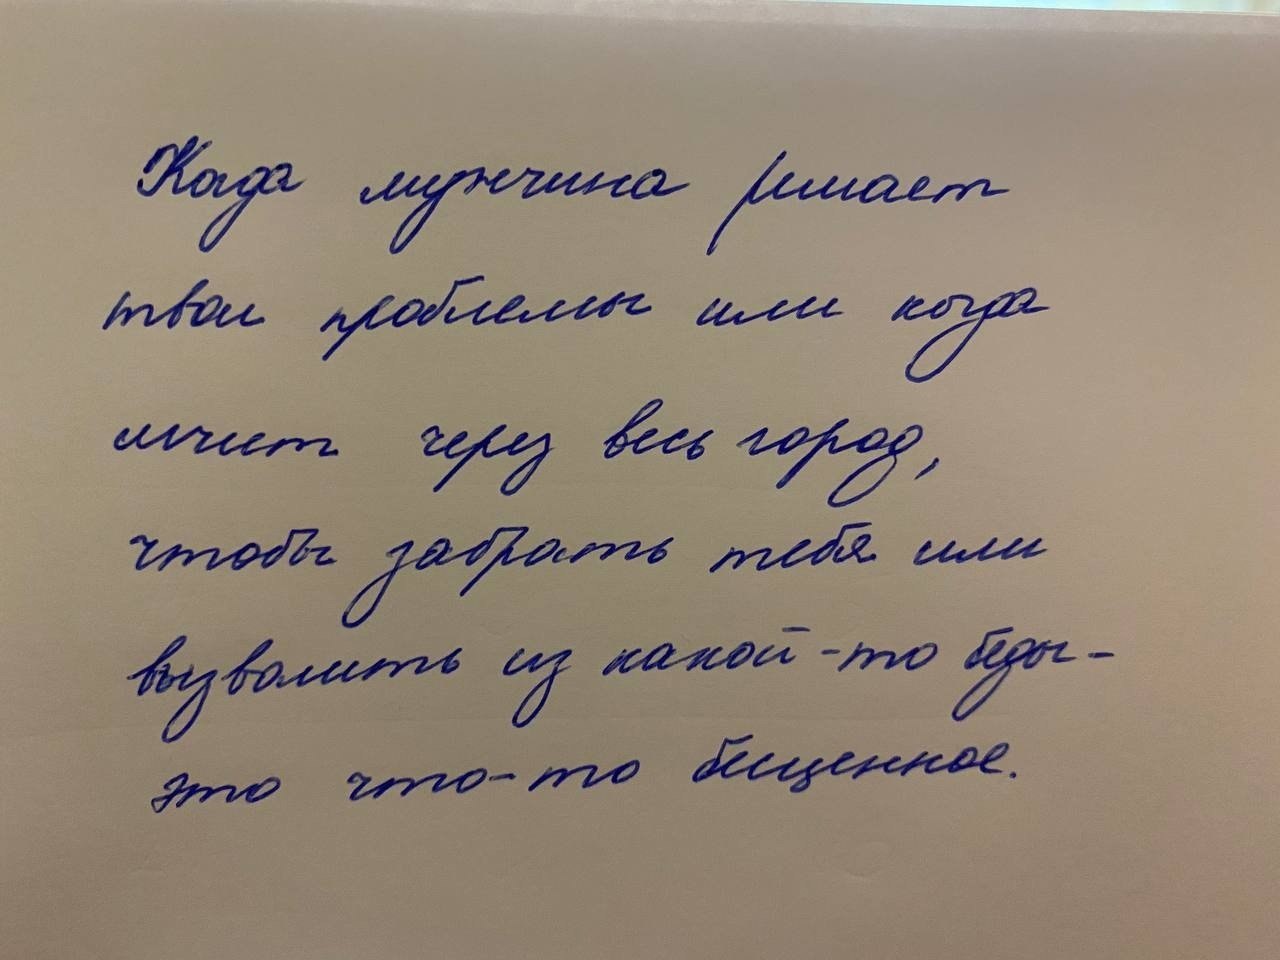 Когда мужчина решает
твои проблемы или когда
мчит через весь город,
чтобы забрать тебя или
вызволить из какой-то беды-
это что-то бесценное.